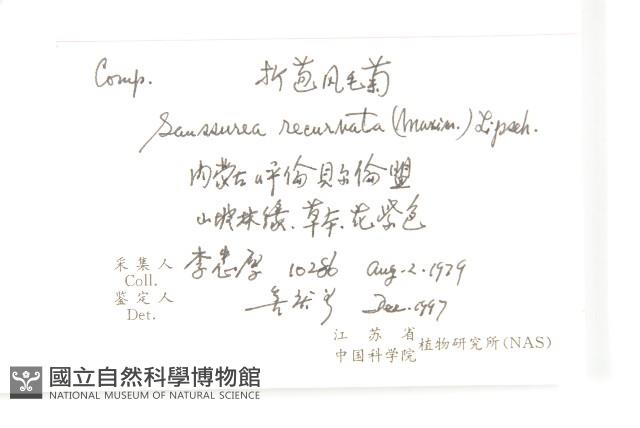 Comp. 折苞风毛菊
Saussurea recurvata (Maxim.) Lipsch.
内蒙古呼伦贝尔盟
山坡林缘、草本、花紫色
采集人 Coll. 10286 Aug. 2. 1979
鉴定人 Det. Dec. 1997
江苏省
中国科学院 植物研究所(NAS)
國立自然科學博物館
NATIONAL MUSEUM OF NATURAL SCIENCE